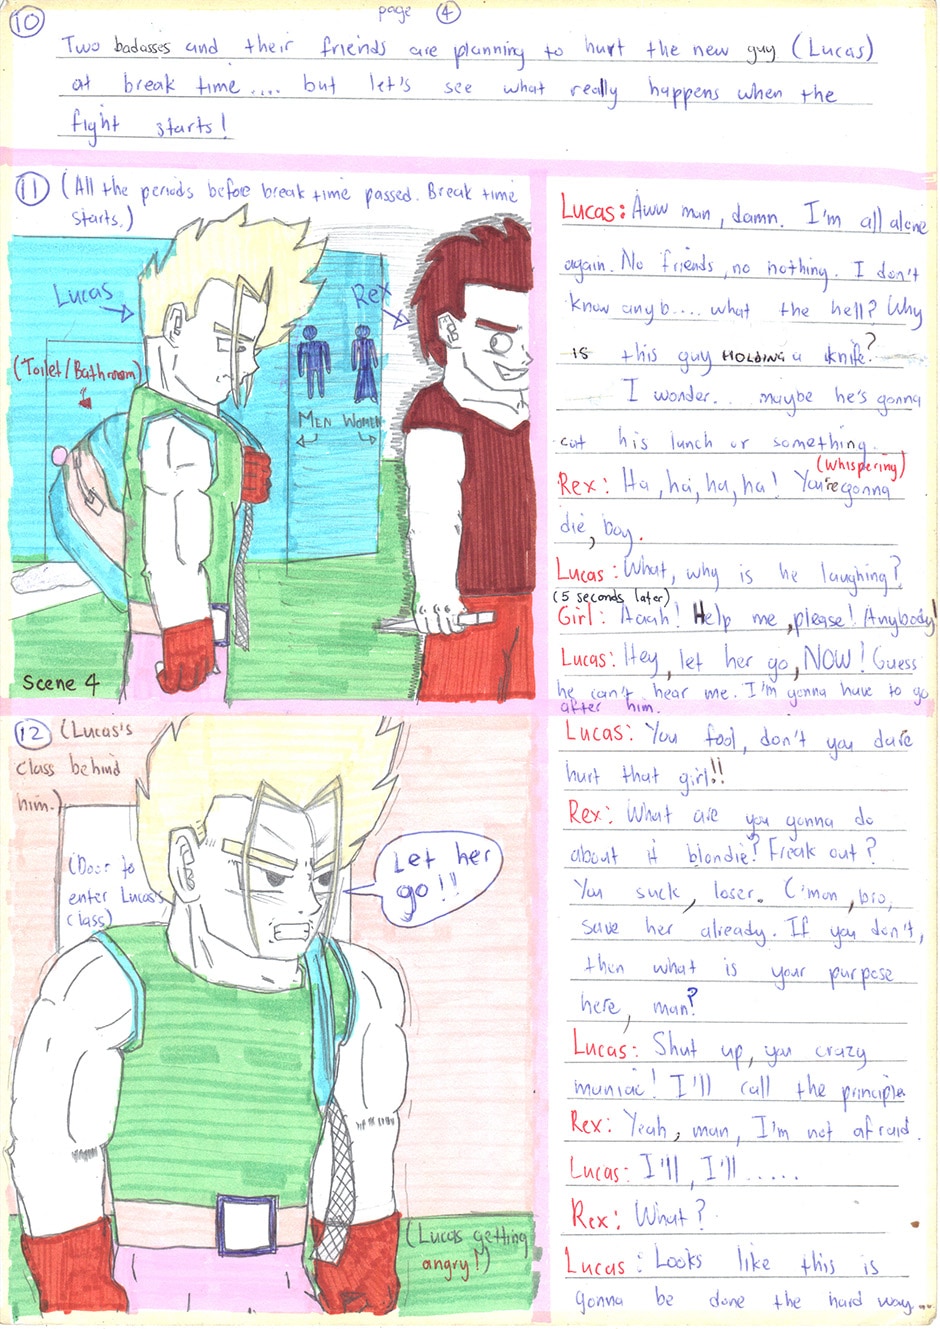 10
page 4
Two badasses and their friends are planning to hurt the new guy (Lucas)
at break time.... but let's see what really happens when the
fight starts!
11 (All the periods before break time passed. Break time
starts.)
Lucas
Rex
(Toilet/Bathroom)
MEN WOMEN
Scene 4
Lucas: Aww man, damn. I'm all alone
again. No friends, no nothing. I don't
know anyb.... what the hell? Why
is this guy HOLDING a knife?
I wonder.. maybe he's gonna
cut his lunch or something.
(whispering)
Rex: Ha, ha, ha, ha! You're gonna
die, boy.
Lucas: What, why is he laughing?
(5 seconds later)
Girl: Aaah! Help me, please! Anybody!
Lucas: Hey, let her go, NOW! Guess
he can't hear me. I'm gonna have to go
after him.
12 (Lucas's
class behind
him.)
(Door to
enter Lucas's
class)
Let her
go!!
(Lucas getting
angry!)
Lucas: You fool, don't you dare
hurt that girl!!
Rex: What are you gonna do
about it blondie? Freak out?
You suck, loser. C'mon, bro,
save her already. If you don't,
then what is your purpose
here, man?
Lucas: Shut up, you crazy
maniac! I'll call the principle
Rex: Yeah, man, I'm not afraid.
Lucas: I'll, I'll.....
Rex: What?
Lucas: Looks like this is
gonna be done the hard way...